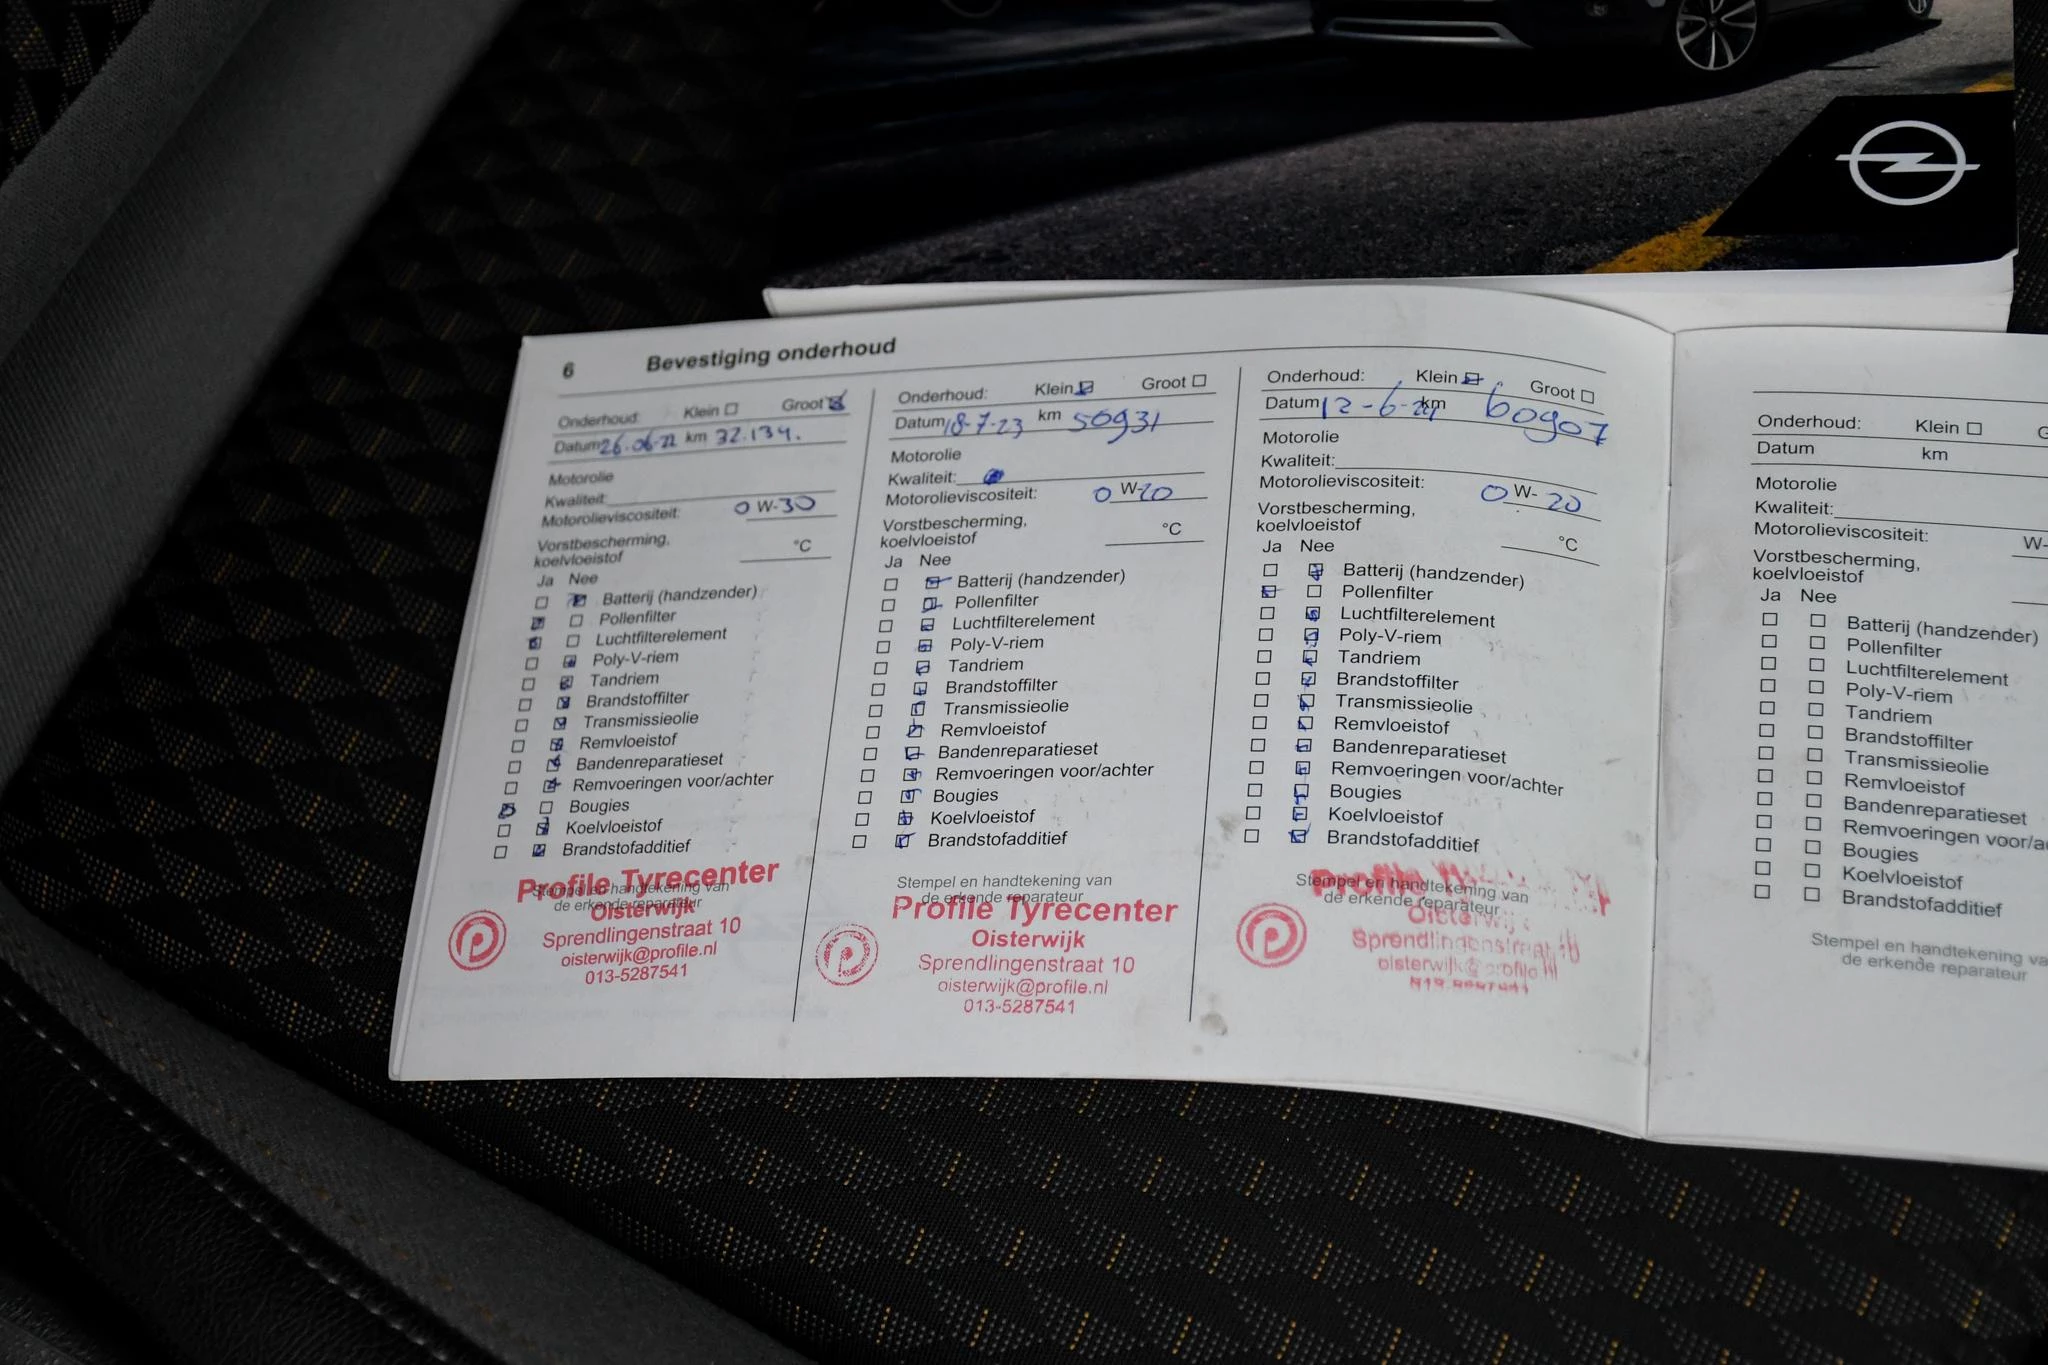 6 Bevestiging onderhoud
Onderhoud: Klein Groot
Datum 26.06-22 km 32.134.
Motorolie
Kwaliteit:
Motorolieviscositeit: 0 W-30
Vorstbescherming,
koelvloeistof °C
Ja Nee
Batterij (handzender)
Pollenfilter
Luchtfilterelement
Poly-V-riem
Tandriem
Brandstoffilter
Transmissieolie
Remvloeistof
Bandenreparatieset
Remvoeringen voor/achter
Bougies
Koelvloeistof
Brandstofadditief
Stempel en handtekening van
de erkende reparateur
Profile Tyrecenter
Oisterwijk
Sprendlingenstraat 10
oisterwijk@profile.nl
013-5287541
Onderhoud: Klein Groot
Datum 18-7-23 km 50931
Motorolie
Kwaliteit:
Motorolieviscositeit: 0 W-20
Vorstbescherming,
koelvloeistof °C
Ja Nee
Batterij (handzender)
Pollenfilter
Luchtfilterelement
Poly-V-riem
Tandriem
Brandstoffilter
Transmissieolie
Remvloeistof
Bandenreparatieset
Remvoeringen voor/achter
Bougies
Koelvloeistof
Brandstofadditief
Stempel en handtekening van
de erkende reparateur
Profile Tyrecenter
Oisterwijk
Sprendlingenstraat 10
oisterwijk@profile.nl
013-5287541
Onderhoud: Klein Groot
Datum 12-6- km 60907
Motorolie
Kwaliteit:
Motorolieviscositeit: 0 W-20
Vorstbescherming,
koelvloeistof °C
Ja Nee
Batterij (handzender)
Pollenfilter
Luchtfilterelement
Poly-V-riem
Tandriem
Brandstoffilter
Transmissieolie
Remvloeistof
Bandenreparatieset
Remvoeringen voor/achter
Bougies
Koelvloeistof
Brandstofadditief
Stempel en handtekening van
de erkende reparateur
Profile
Oisterwijk
Sprendlingenstraat 10
oisterwijk@profile.nl
Onderhoud: Klein
Datum km
Motorolie
Kwaliteit:
Motorolieviscositeit: W-
Vorstbescherming,
koelvloeistof
Ja Nee
Batterij (handzender)
Pollenfilter
Luchtfilterelement
Poly-V-riem
Tandriem
Brandstoffilter
Transmissieolie
Remvloeistof
Bandenreparatieset
Remvoeringen
Bougies
Koelvloeistof
Brandstofadditief
Stempel en handtekening
de erkende reparateur